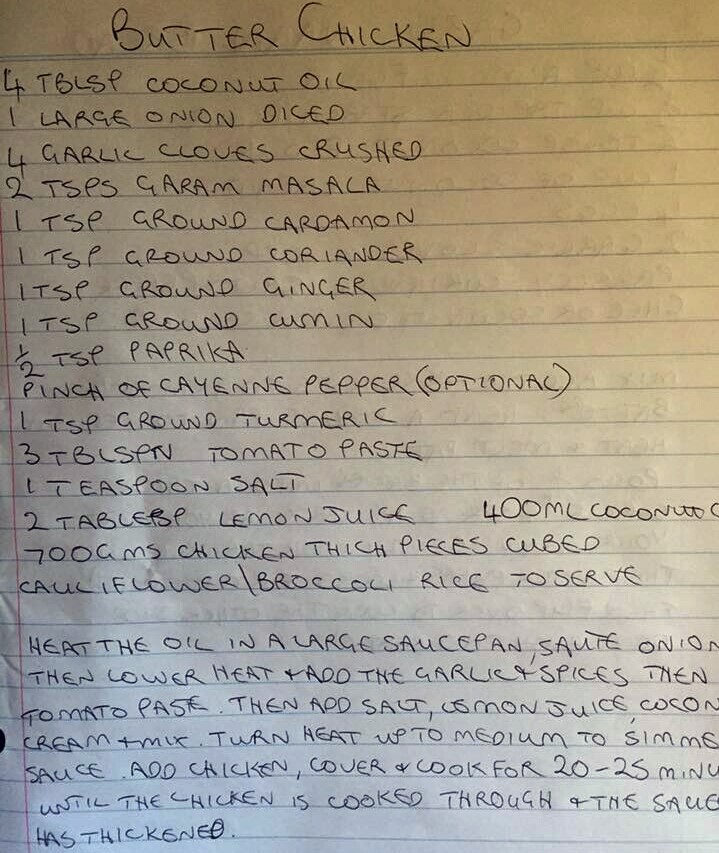 BUTTER CHICKEN
4 TBLSP COCONUT OIL
1 LARGE ONION DICED
4 GARLIC CLOVES CRUSHED
2 TSPS GARAM MASALA
1 TSP GROUND CARDAMON
1 TSP GROUND CORIANDER
1 TSP GROUND GINGER
1 TSP GROUND CUMIN
1/2 TSP PAPRIKA
PINCH OF CAYENNE PEPPER (OPTIONAL)
1 TSP GROUND TURMERIC
3 TBLSPN TOMATO PASTE
1 TEASPOON SALT
2 TABLESP LEMON JUICE 400ML COCONUT C
700GMS CHICKEN THIGH PIECES CUBED
CAULIFLOWER\BROCCOLI RICE TO SERVE
HEAT THE OIL IN A LARGE SAUCEPAN, SAUTE ONION
THEN LOWER HEAT + ADD THE GARLIC + SPICES THEN
TOMATO PASTE. THEN ADD SALT, LEMON JUICE, COCON
CREAM + MIX. TURN HEAT UP TO MEDIUM TO SIMME
SAUCE. ADD CHICKEN, COVER + COOK FOR 20-25 MINU
UNTIL THE CHICKEN IS COOKED THROUGH + THE SAUCE
HAS THICKENED.